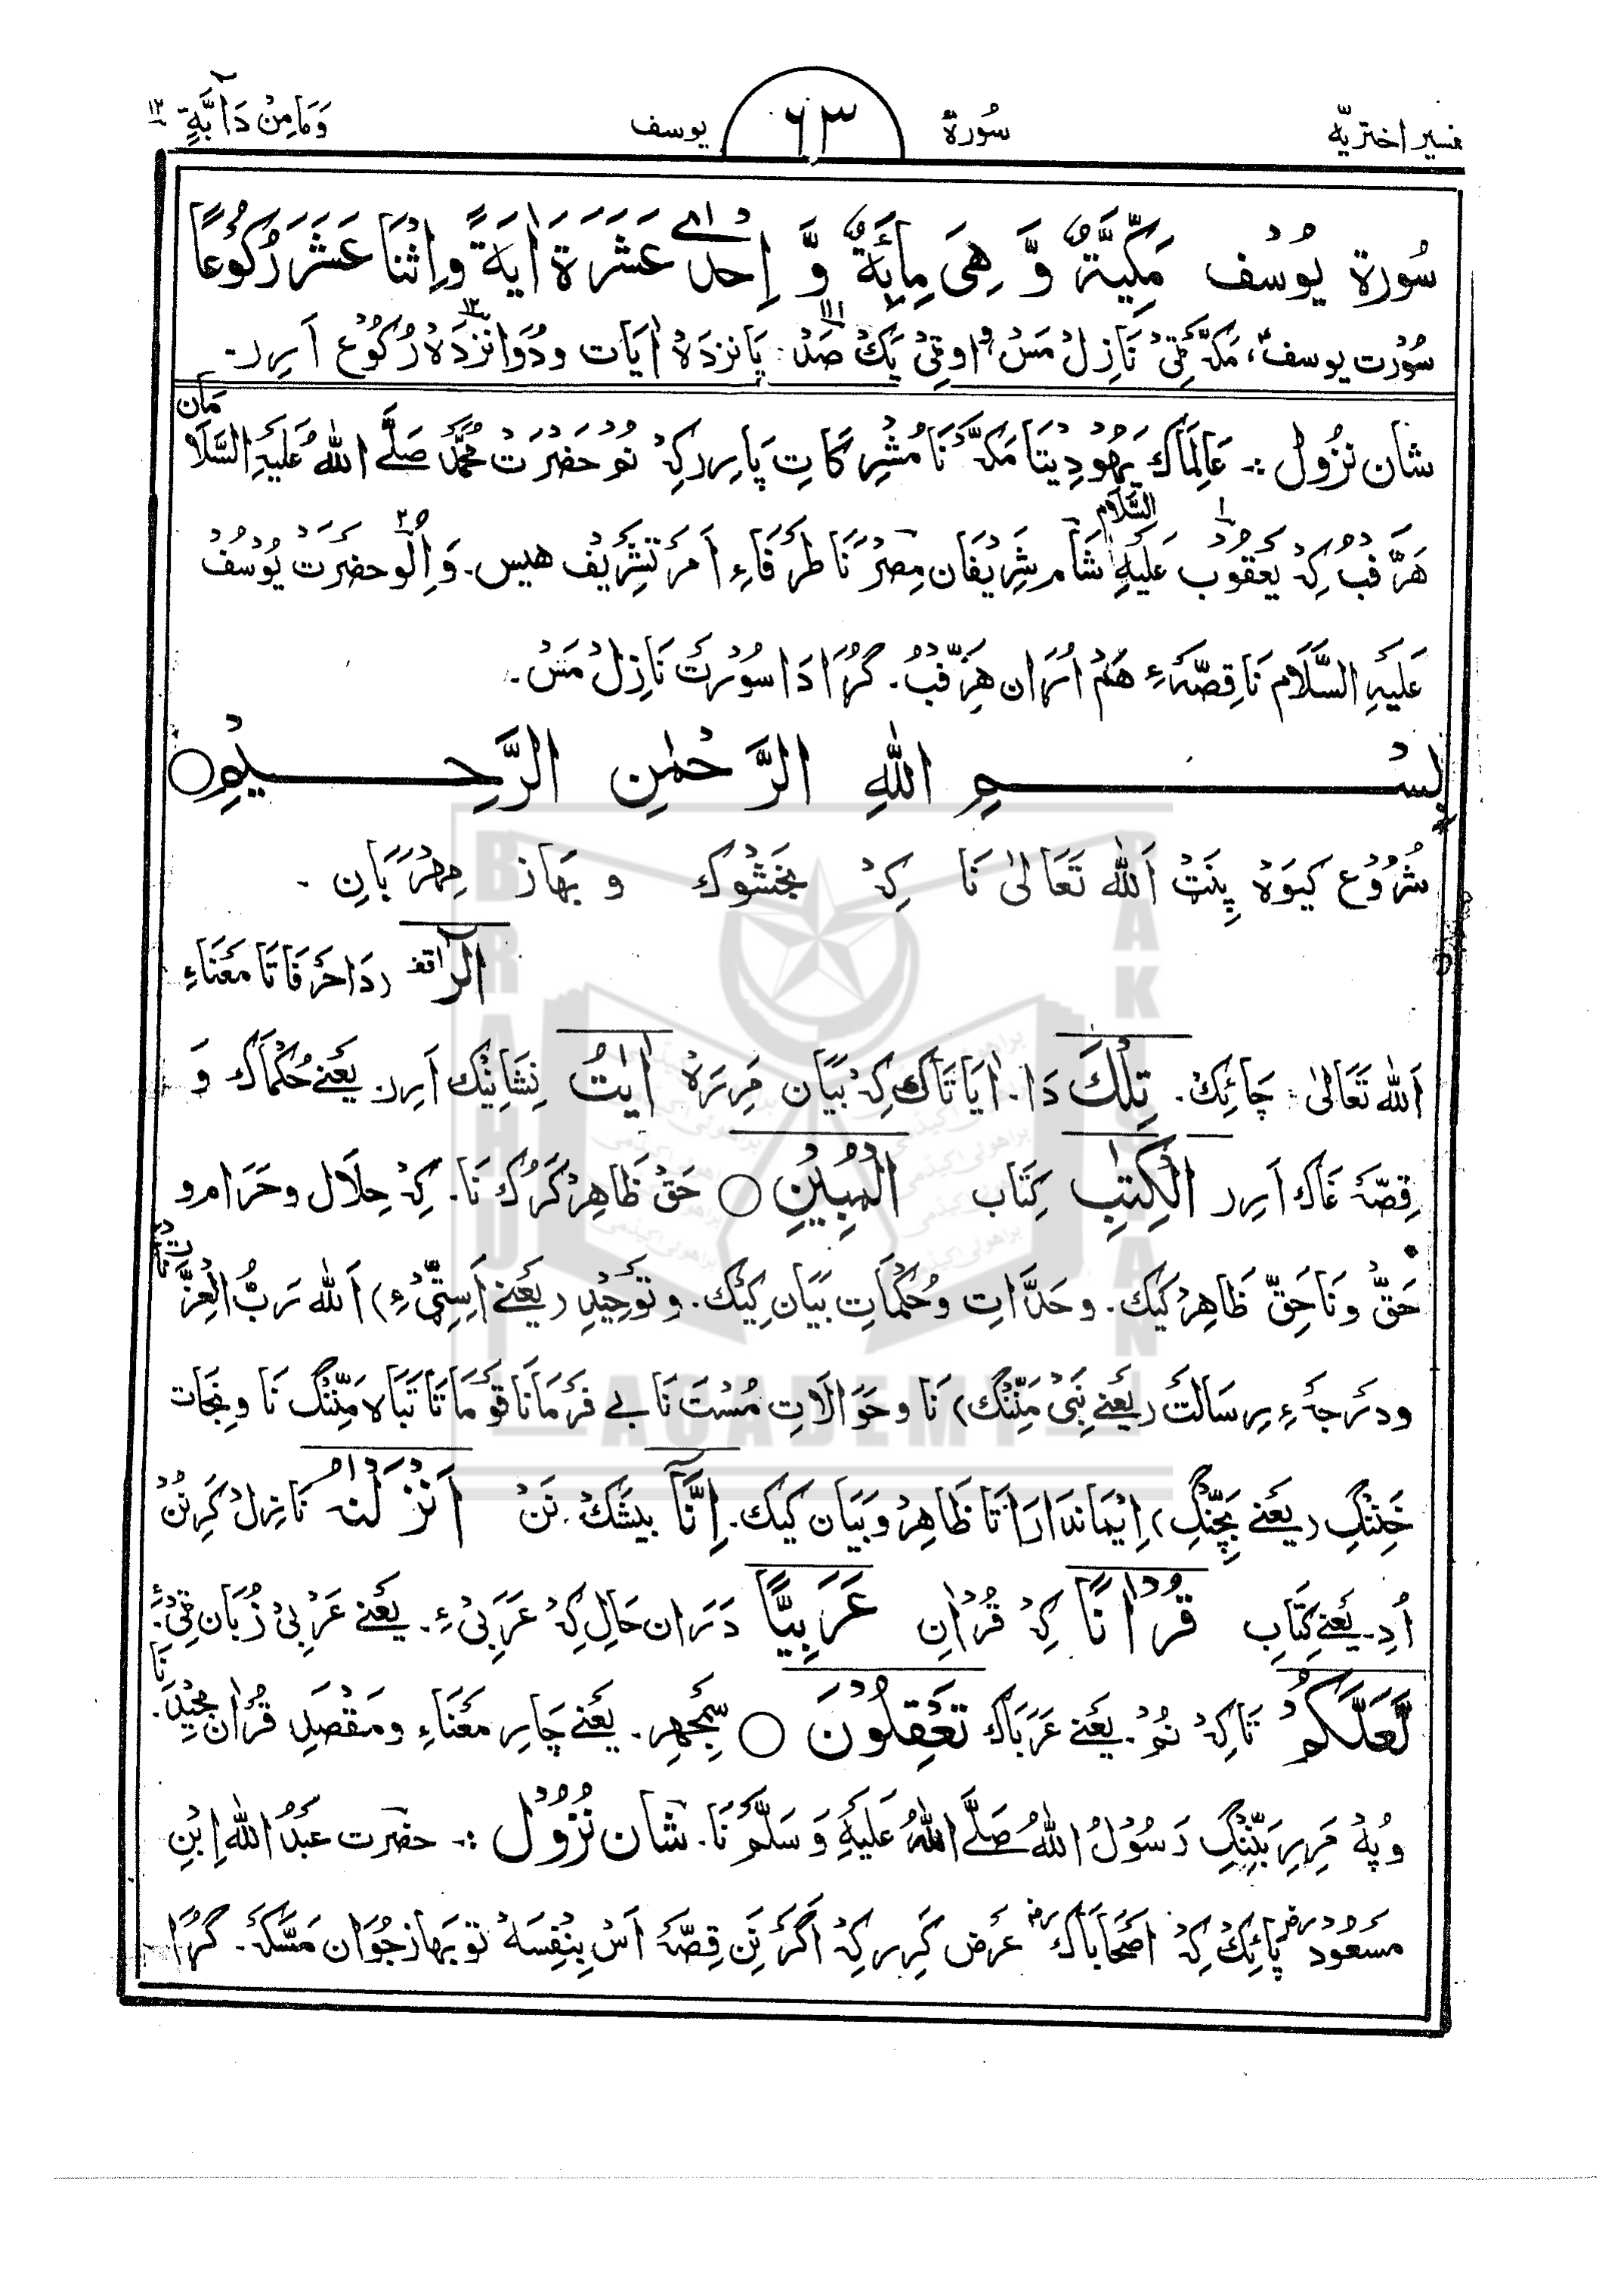 تفسیر اختریّه سُورة ۶۳ یوسف وَمَا مِنْ دَآبَّةٍ ۱۲
سُورة یُوسُف مَکِّیَّةٌ وَّ هِیَ مِایَةٌ وَّ اِحْدٰے عَشَرَةَ اٰیَةً وَاِثْنَا عَشَرَ رُکُوْعًا
سُورْت یوسف، مَکَّہ ٹِیْ نَازِلْ مَسْ، و اوتِیْ یَکْ صَدْ ۱۱۱ پَانزدَہْ اٰیَات و دُوَانْزدَہْ ۱۲ رُکُوْع اَرِر۔
شان نزُول :۔ عَالِمَاک یَہُودِیتَا مَکَّہ نَا مُشْرِکَاتِ پَارِر کِہْ نُم حَضْرَتْ مُحَمَّدْ صَلَّے اللّٰہُ عَلَیْہِ السَّلَامَان
ہَرَّفبُ کِہْ یَعْقُوب عَلَیْہِ السَّلَام شَام شَرِیْفَان مِصْرْ نَا طَرَفَاءِ اَمَر تَشْرِیْف ہیس۔ وَ اُلُو حضرَتْ یُوْسُف
عَلَیْہِ السَّلَام نَا قِصَّہَءِ ہَمْ اُرَان ہَرِّفبُ۔ گُرَا دَا سُوْرَتْ نَازِلْ مَسْ۔
بِسْمِ اللّٰہِ الرَّحْمٰنِ الرَّحِیْمِ ○
شُرُوْع کیوَہْ پِنَتْ اَللّٰہ تَعَالیٰ نَا کِہْ بَخْشُوک و بھَاز مِہْرَبَانِ ۔
الٓرٰ قف (دَا حَرفَاتَا مَعْنَاءِ
اَللّٰہ تَعَالیٰ چَائِکْ۔ تِلْکَ دَا۔ اٰیَاتَاک کِہْ بَیَان مَرِرَہْ اٰیٰتُ نِشَانِیْک اَرِر۔ یَعْنے حُکْمَاک وَ
قِصَّہ غَاک اَرِر الْکِتٰبِ کِتَاب الْمُبِیْنِ ○ حَقْ ظَاہِرْ کَرُک نَا۔ کِہْ حِلَال و حَرَام و
حَقّ و نَا حَقّ ظَاہِرْ کیک۔ و حَدَّاتِ و حُکْمَاتِ بَیَان کیک۔ و تَوْحِیْدِ (یَعْنے اَسِتِیّ ءِ) اَللّٰہ رَبُّ الْعِزَّت نَا
و دَرَجہَءِ رِسَالَتْ (یَعْنے نَبِیْ مَنِّنْگ) نَا و حَوَالَاتِ مُسْتَ نَا بے فَرْمَان قَوْمَاتَا تَبَاہ مَنِّنْگ نَا و نِجَات
خَنِنْگ (یَعْنے بَچِّنْگ) اِیْمَانْدَارَاتَا ظَاہِرْ و بَیَان کیک۔ اِنَّآ بیشَکْ نَنْ اَنْزَلْنٰہُ نَازِلْ کَرِنُنْ
اُدِ۔ یَعْنے کِتَابِ قُرْاٰنًا کِہْ قُرْاٰنِ عَرَبِیًّا دَرَان حَال کِہْ عَرَبِیْ ءِ۔ یَعْنے عَرْبِیْ زُبَان تِیْ ءِ۔
لَّعَلَّکُمْ تَاکِہْ نُمْ۔ یَعْنے عَرَبَاک تَعْقِلُوْنَ ○ سَمْجِھر۔ یَعْنے چَارِر مَعْنَاءِ و مَقْصَدِ قُرْاٰن مَجِیْد نَا۔
و پُہْ مَرِر بَیِّنْگ رَسُوْلُ اللّٰہُ صَلَّے اللّٰہُ عَلَیْہِ وَسَلَّمْ نَا۔ شان نُزُوْل :۔ حضْرت عَبْدُ اللّٰہ اِبْنِ
مَسعُوْد رض پَائِک کِہْ اَصْحَابَاک رض عَرْض کَرِر کِہْ اَگَر نَن قِصَّہ اَسْ بِنْفِسَہْ تو بھَاز جُوَان مَسَّکَہ۔ گُرَا
BRAHUI
ACADEMY
PAKISTAN
براھوئی اکیڈمی